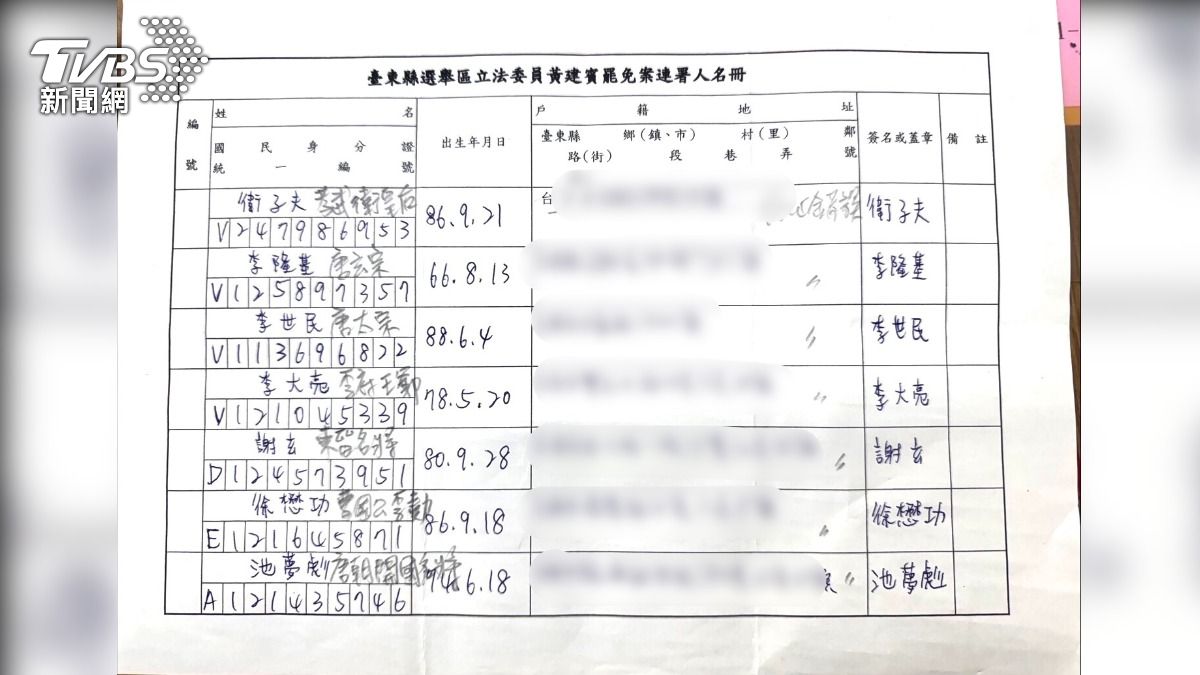 TVBS
新聞網
臺東縣選舉區立法委員黃建賓罷免案連署人名冊
編號
姓 名
國民身分證
統一編號
出生年月日
戶籍地址
臺東縣 鄉(鎮、市) 村(里) 鄰
路(街) 段 巷 弄 號
簽名或蓋章
備註
衛子夫 孝武衛皇后
V247986953
86.9.21
台
衛子夫
李隆基 唐玄宗
V125897357
66.8.13
〃
李隆基
李世民 唐太宗
V113696822
88.6.4
〃
李世民
李大亮
V121045339
78.5.20
〃
李大亮
謝玄 東晉名將
D124573951
80.9.28
〃
謝玄
徐懋功 曹國公李勣
E121645871
86.9.18
〃
徐懋功
池夢彪 唐朝開國名將
A121435746
6.18
〃
池夢彪